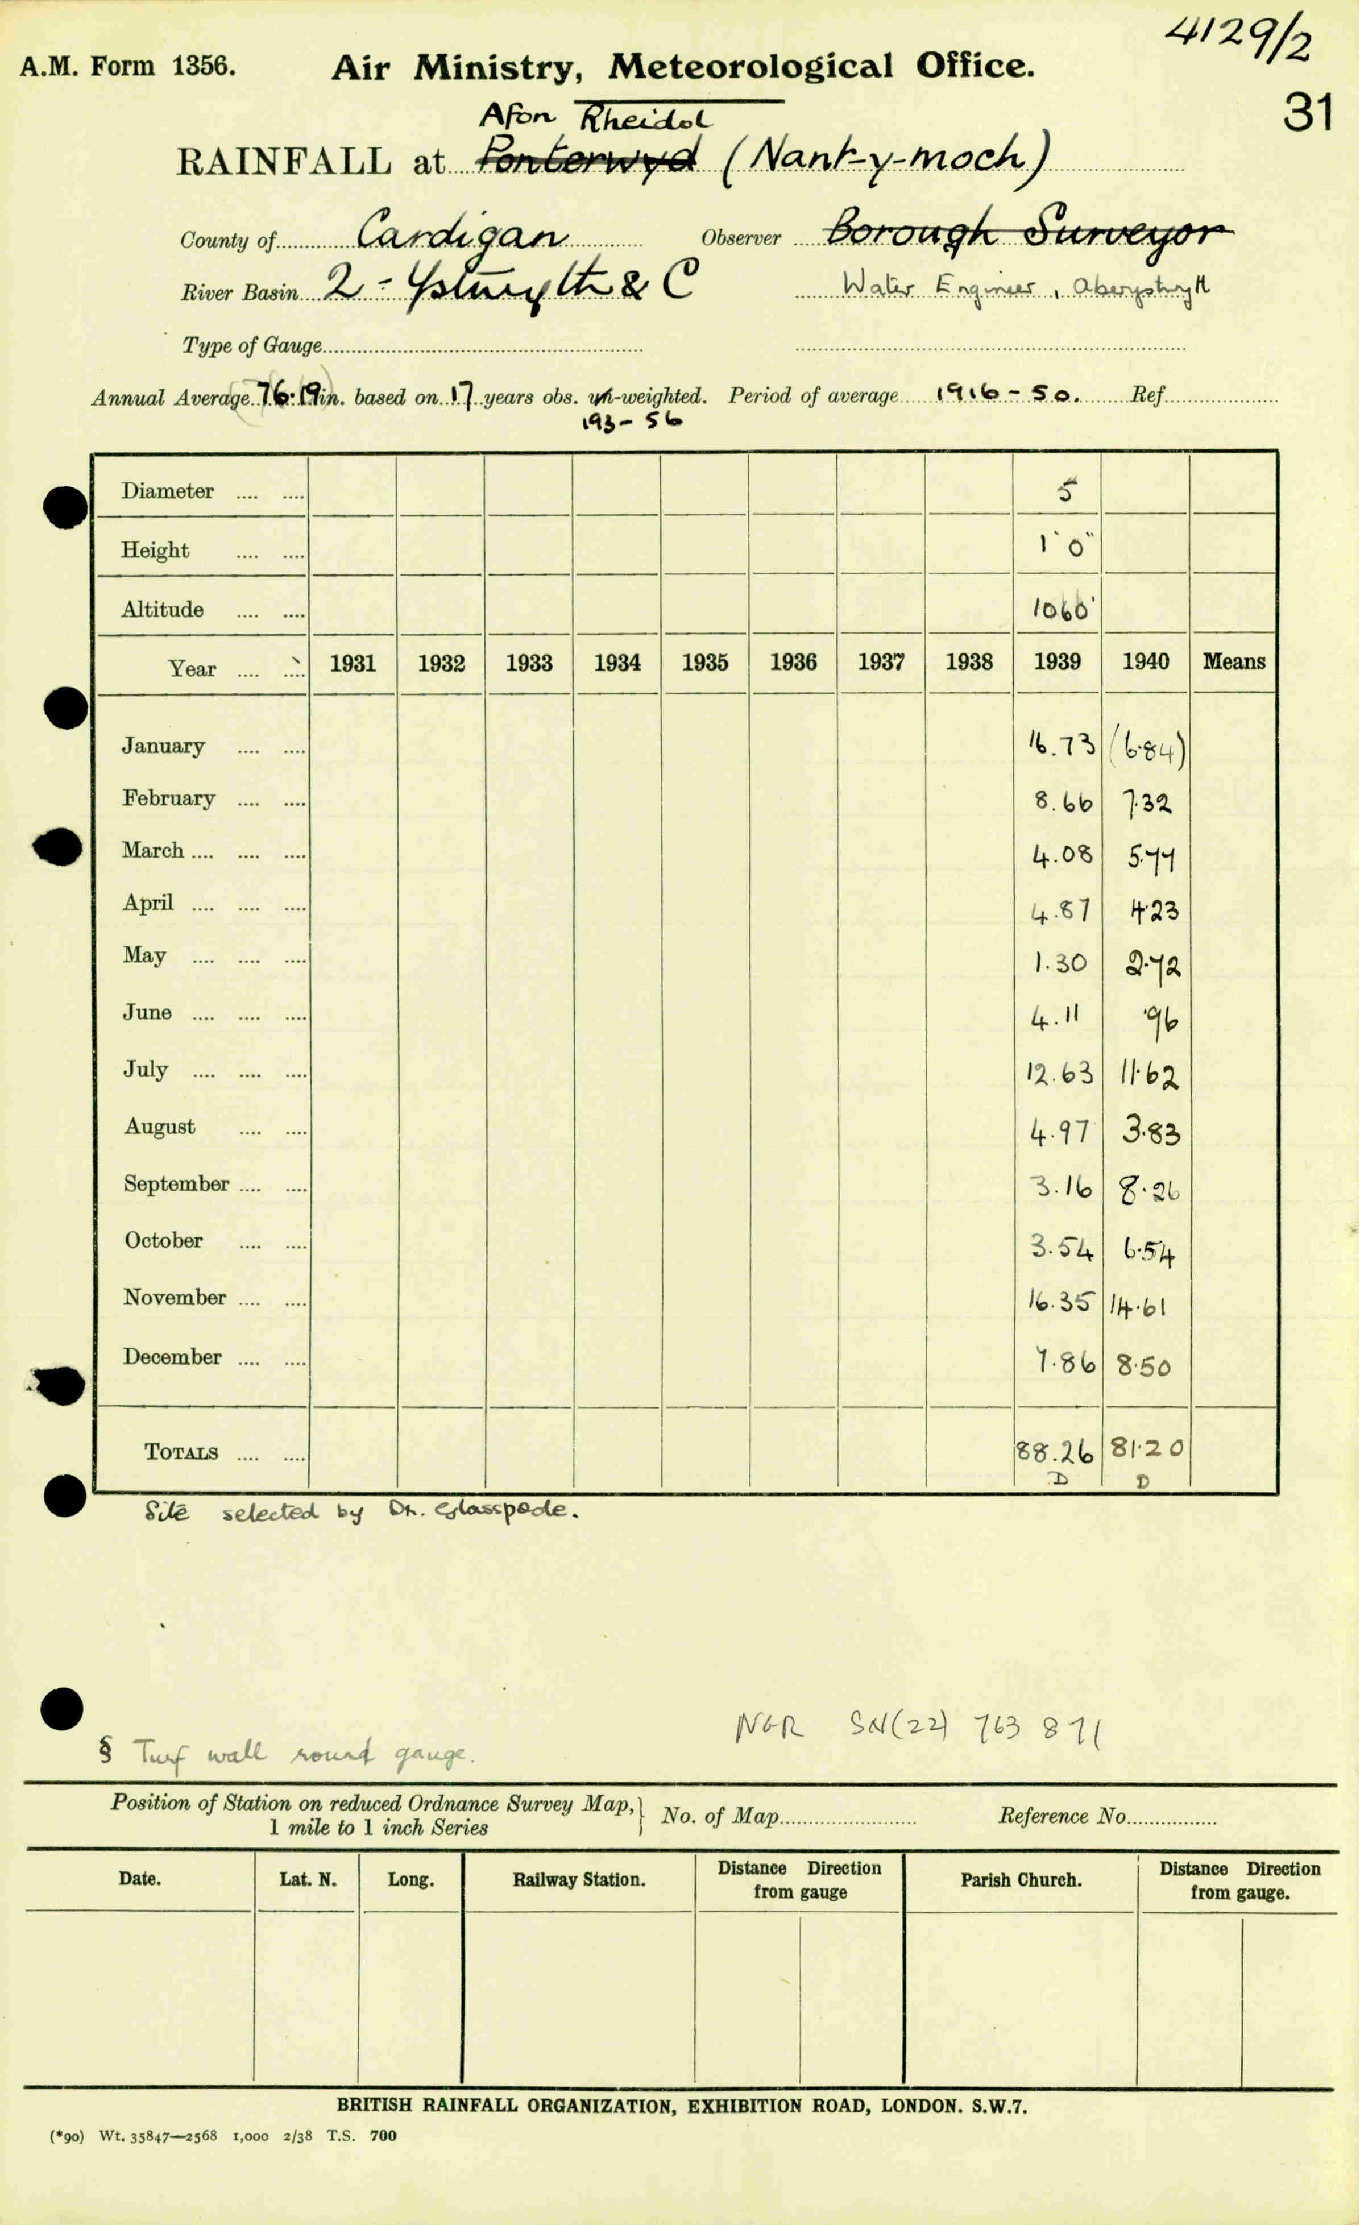 4129/2
A.M. Form 1356. Air Ministry, Meteorological Office.
31
Afon Rheidol
RAINFALL at Ponterwyd (Nant-y-moch)
County of Cardigan Observer Borough Surveyor
River Basin 2 - Ystwyth & C Water Engineer, Aberystwyth
Type of Gauge
Annual Average (76.19) in. based on 17 years obs. un-weighted. Period of average 1916-50. Ref.
193-56
Diameter 5
Height 1'0"
Altitude 1060'
Year 1931 1932 1933 1934 1935 1936 1937 1938 1939 1940 Means
January 16.73 (6.84)
February 8.66 7.32
March 4.08 5.77
April 4.87 4.23
May 1.30 2.72
June 4.11 .96
July 12.63 11.62
August 4.97 3.83
September 3.16 8.26
October 3.54 6.54
November 16.35 14.61
December 7.86 8.50
TOTALS 88.26 81.20
D D
Site selected by Dr. Glasspoole.
NGR SN(22) 763 871
§ Turf wall round gauge.
Position of Station on reduced Ordnance Survey Map, 1 mile to 1 inch Series } No. of Map Reference No.
Date. Lat. N. Long. Railway Station. Distance Direction from gauge Parish Church. Distance Direction from gauge.
BRITISH RAINFALL ORGANIZATION, EXHIBITION ROAD, LONDON. S.W.7.
(*90) Wt. 35847—2568 1,000 2/38 T.S. 700